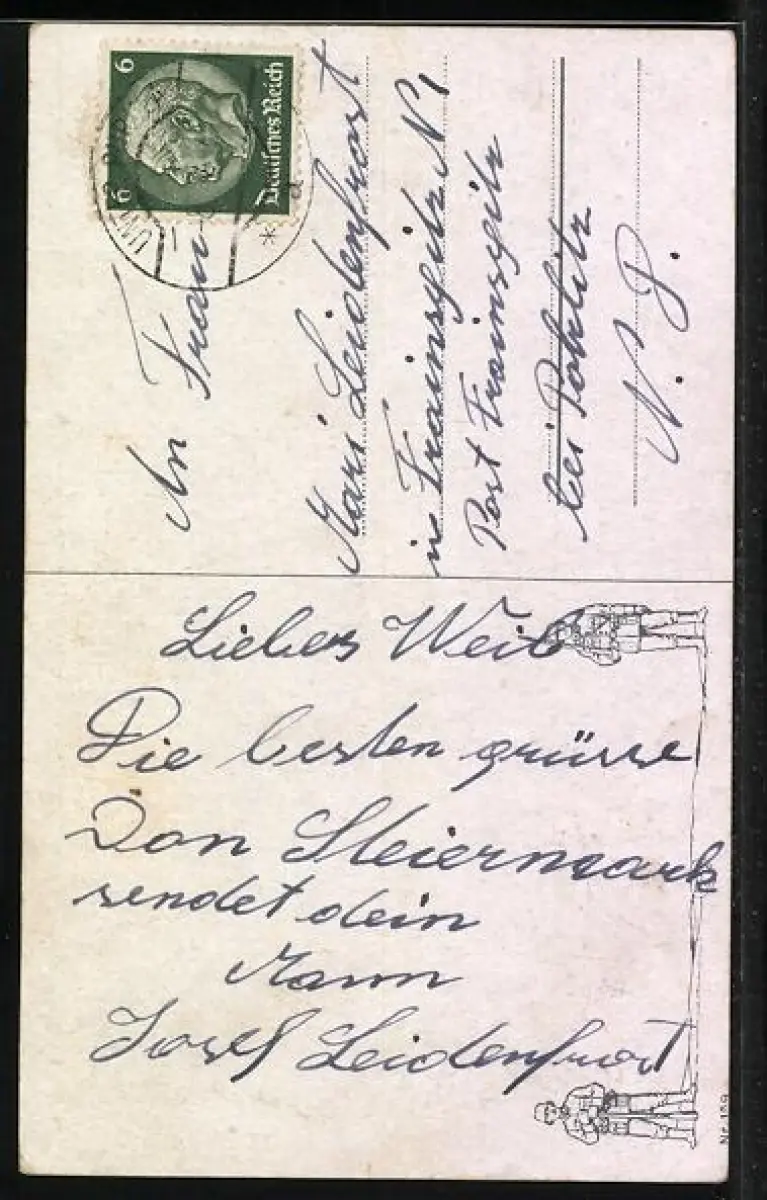 Liebes Weib
Die besten grüsse
Von Steiermark
sendet dein
Mann
Josef Leidenfrost
Deutsches Reich
6
6
An Frau
Mari Leidenfrost
in Frainspitz N 1
Post Frainspitz
bei Pohlitz
N. D.
Nr. 139